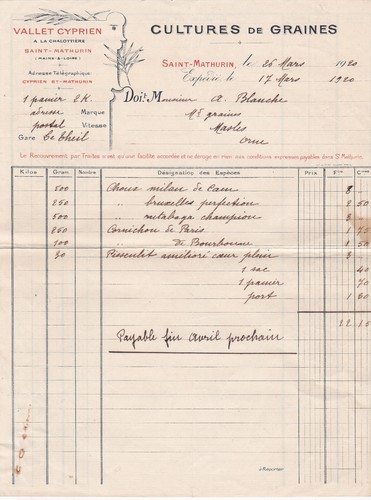 VALLET CYPRIEN
A LA CHALOTTIÈRE
SAINT-MATHURIN
(MAINE-&-LOIRE)
Adresse Télégraphique
CYPRIEN ST-MATHURIN
CULTURES DE GRAINES
SAINT-MATHURIN, le 26 Mars 1920
Expédié le 17 Mars 1920
Doit Monsieur A. Blanche
Md graines
Orne
1 panier 2 K. Marque
adresse
postal Vitesse
Gare
Le Remboursement par Traites n'est qu'une facilité accordée et ne déroge en rien aux conditions expresses payables dans St Mathurin.
Kilos Gram. Nombre Désignation des Espèces Prix Fcs Cmes
500 Choux milan de Caen 8
250 " bruxelles perfection 2 50
500 " rutabaga champion 3
250 Cornichon de Paris 1
100 " De Bourbonne 1 50
30 Pissenlit amélioré cœur plein 3
1 sac 40
1 panier 70
port 1
22 15
Payable fin Avril prochain